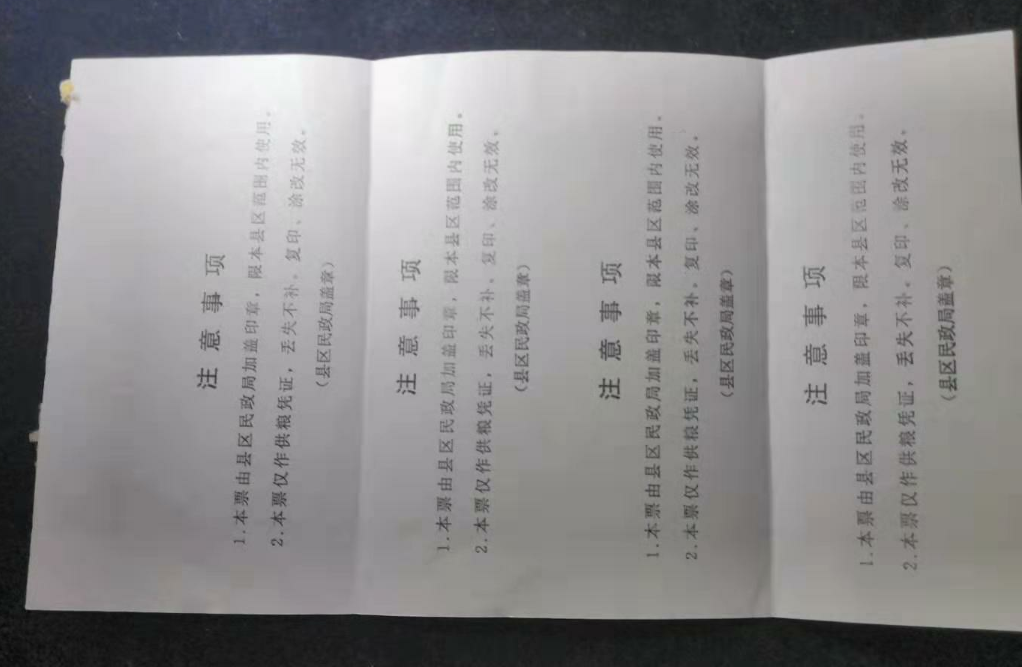 注意事项
1.本票由县区民政局加盖印章，限本县区范围内使用。
2.本票仅作供粮凭证，丢失不补。复印、涂改无效。
（县区民政局盖章）
注意事项
1.本票由县区民政局加盖印章，限本县区范围内使用。
2.本票仅作供粮凭证，丢失不补。复印、涂改无效。
（县区民政局盖章）
注意事项
1.本票由县区民政局加盖印章，限本县区范围内使用。
2.本票仅作供粮凭证，丢失不补。复印、涂改无效。
（县区民政局盖章）
注意事项
1.本票由县区民政局加盖印章，限本县区范围内使用。
2.本票仅作供粮凭证，丢失不补。复印、涂改无效。
（县区民政局盖章）